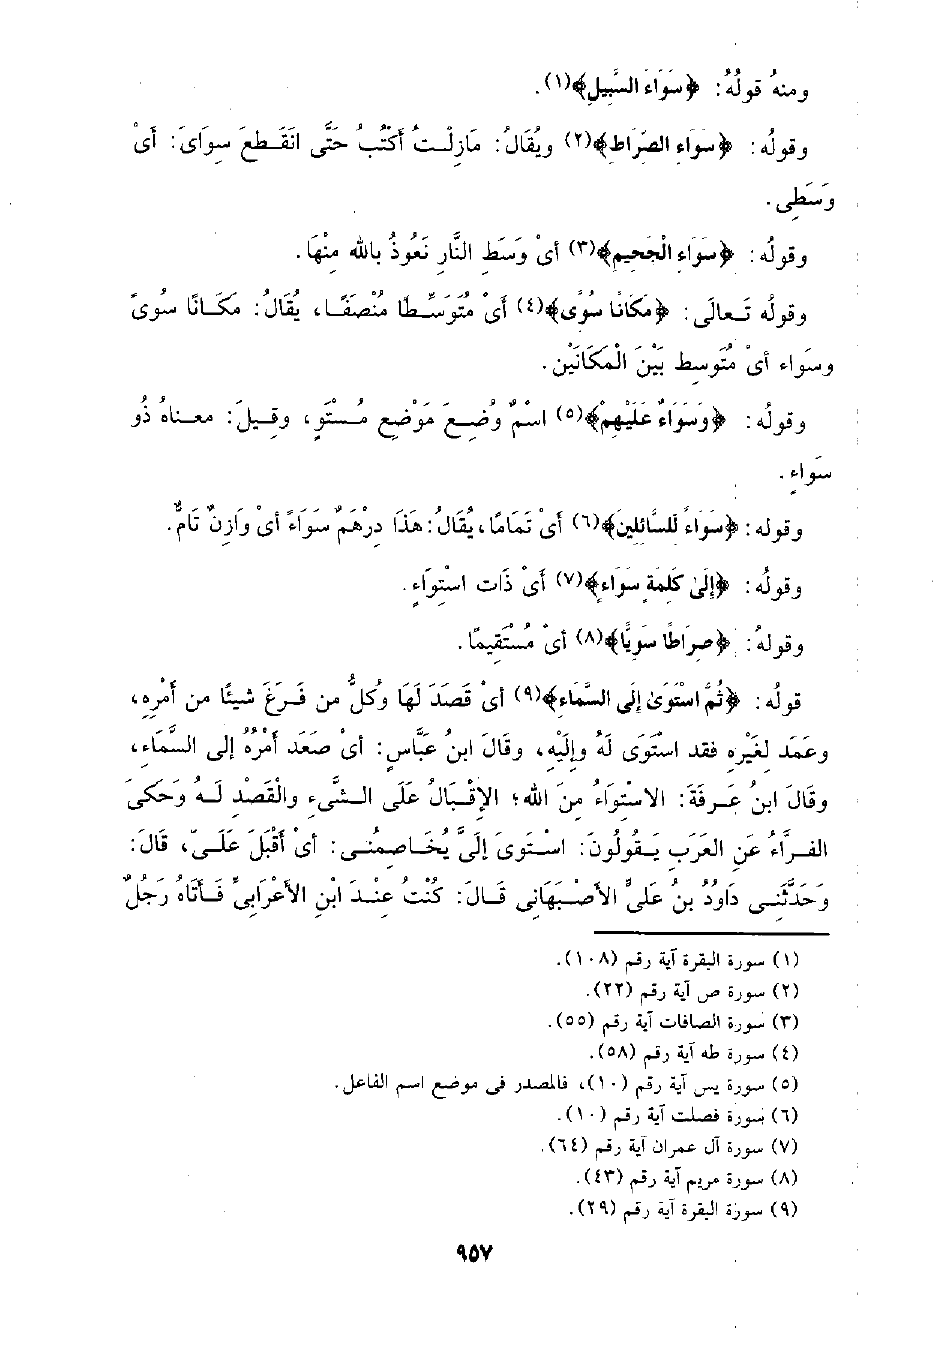 ومنهُ قولُهُ: ﴿سَوَاءَ السَّبِيلِ﴾(١).
وقولُه: ﴿سَوَاءِ الصِّرَاطِ﴾(٢) ويُقَالُ: مَازِلْتُ أَكْتُبُ حَتَّى انْقَطعَ سِوَاىَ: أىْ
وَسَطِى.
وقولُه: ﴿سَوَاءِ الْجَحِيمِ﴾(٣) أىْ وَسَطِ النَّارِ نَعُوذُ بالله مِنْهَا.
وقولُه تَعالَى: ﴿مَكَانًا سُوًى﴾(٤) أىْ مُتَوَسِّطًا مُنْصَفًا، يُقَالُ: مَكَانًا سُوىً
وسَواء أىْ مُتَوسِط بَيْنَ الْمَكَانَيْن.
وقولُه: ﴿وَسَوَاءٌ عَلَيْهِمْ﴾(٥) اسْمٌ وُضِعَ مَوْضِعِ مُسْتَوٍ، وقِيلَ: معناهُ ذُو
سَواءٍ.
وقوله: ﴿سَوَاءً لِلسَّائِلِينَ﴾(٦) أىْ تَمامًا، يُقَالُ: هَذَا دِرْهَمٌ سَوَاءً أىْ وَازِنٌ تَامٌّ.
وقولُه: ﴿إِلَىٰ كَلِمَةٍ سَوَاءٍ﴾(٧) أىْ ذَات اسْتِوَاءٍ.
وقولهُ: ﴿صِرَاطًا سَوِيًّا﴾(٨) أىْ مُسْتَقِيمًا.
قولُه: ﴿ثُمَّ اسْتَوَىٰ إِلَى السَّمَاءِ﴾(٩) أىْ قَصَدَ لَهَا وكُلُّ من فَرَغَ شيئًا من أَمْرِه،
وعَمَد لغَيْرِه فقد اسْتَوَى لَهُ وإليْهِ، وقَالَ ابنُ عبَّاسٍ: أىْ صَعَد أَمْرُهُ إلى السَّمَاءِ،
وقَالَ ابنُ عَرفَةَ: الاسْتِواءُ مِنَ اللهِ؛ الإقْبَالُ عَلَى الشَّىءِ والْقَصْدِ لَهُ وَحكَىَ
الفَرَّاءُ عَنِ العَرَبِ يَقُولُونَ: اسْتَوىَ إلَىَّ يُخَاصِمُنِى: أىْ أَقْبَلَ عَلَىَّ، قَالَ:
وَحَدَّثَنِى دَاوُدُ بنُ عَلىٍّ الأصْبَهَانِى قَالَ: كُنْتُ عِنْدَ ابْنِ الأعْرَابِىِّ فَأَتَاهُ رَجُلٌ
(١) سورة البقرة آية رقم (١٠٨).
(٢) سورة ص آية رقم (٢٢).
(٣) سورة الصافات آية رقم (٥٥).
(٤) سورة طه آية رقم (٥٨).
(٥) سورة يس آية رقم (١٠)، فالمصدر فى موضع اسم الفاعل.
(٦) سورة فصلت آية رقم (١٠).
(٧) سورة آل عمران آية رقم (٦٤).
(٨) سورة مريم آية رقم (٤٣).
(٩) سورة البقرة آية رقم (٢٩).
٩٥٧